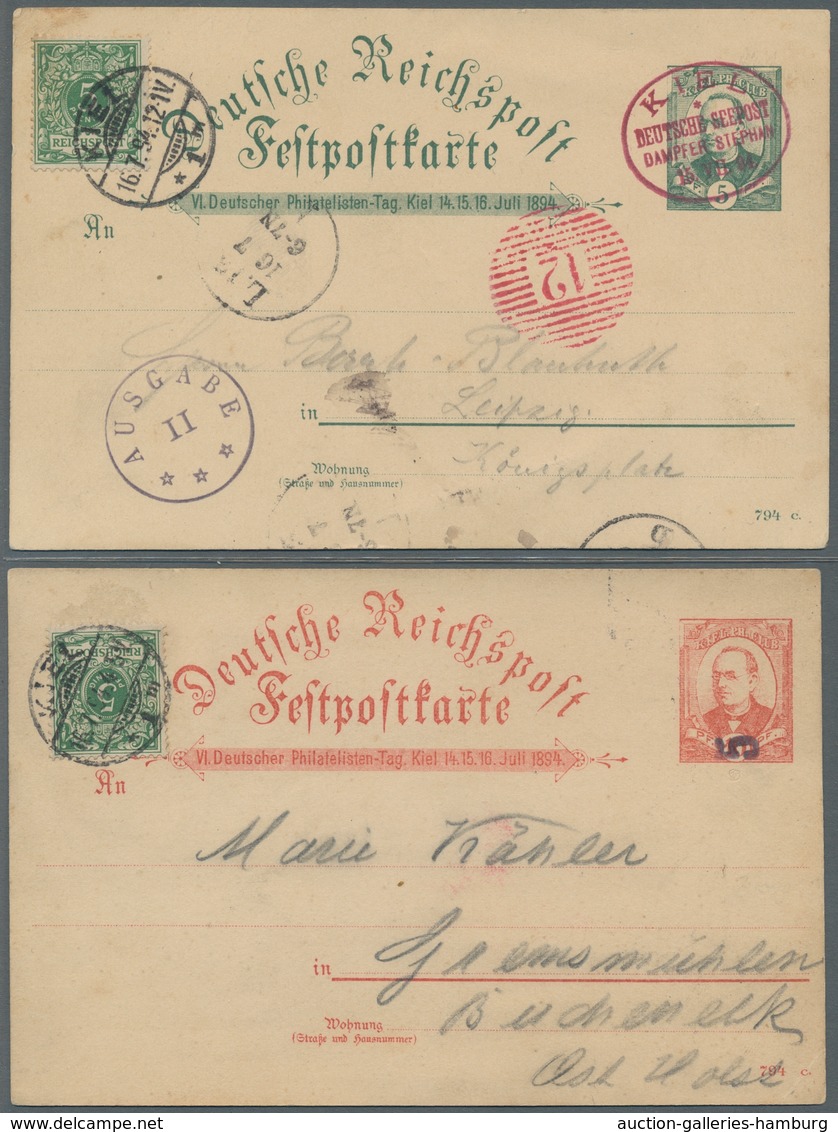 Deutsche Reichspost
Festpostkarte
VI. Deutscher Philatelisten-Tag. Kiel 14. 15. 16. Juli 1894.
REICHSPOST
KIEL
16.7.94. 12-1V.
* 1
KIEL.PH.CLUB
5
KIEL
*
DEUTSCHE SEEPOST
DAMPFER STEPHAN
An
12
AUSGABE
II
Leipzig
in
Wohnung
(Straße und Hausnummer)
Königsplatz
794 c.
Deutsche Reichspost
Festpostkarte
VI. Deutscher Philatelisten-Tag. Kiel 14. 15. 16. Juli 1894.
REICHSPOST
5
KIEL
KIEL.PH.CLUB
5
An
Marie Kähler
in
Gremsmühlen
Wohnung
(Straße und Hausnummer)
Ost Holst
794 c.
auction-galleries-hamburg